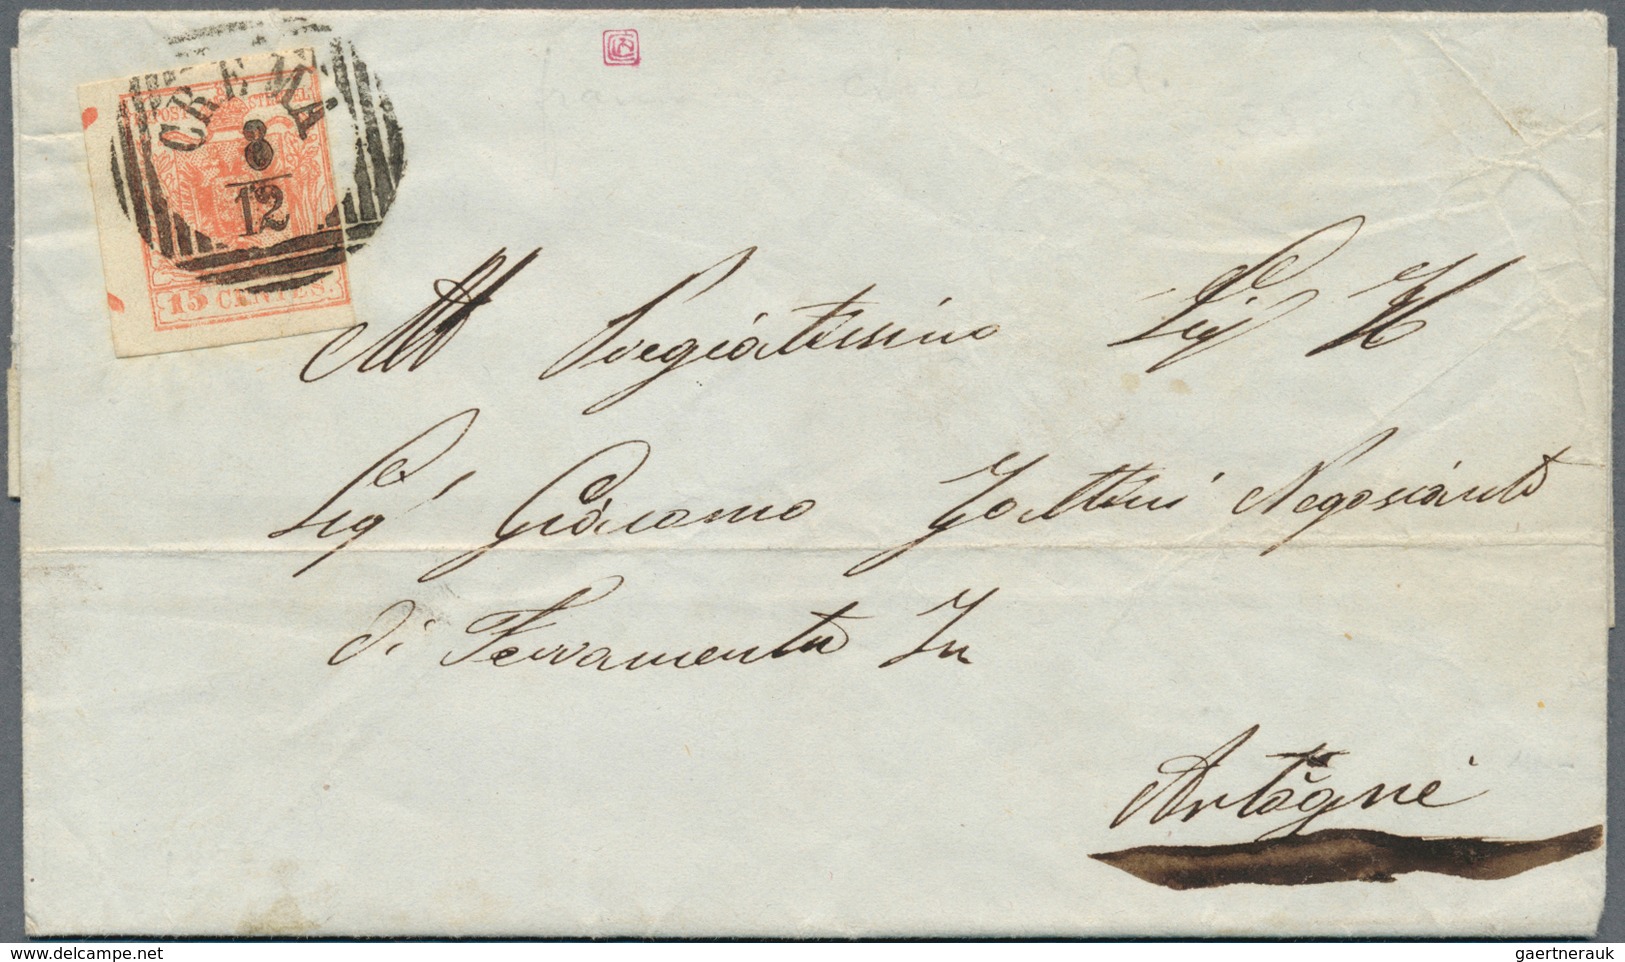 CREMA
8
12
15 CENTES.
All Pregiatissimo Sig H
Sig Giacomo Zattini Negosiante
di Ferramenta In
Artogne
delcampe.net
gaertnerauk